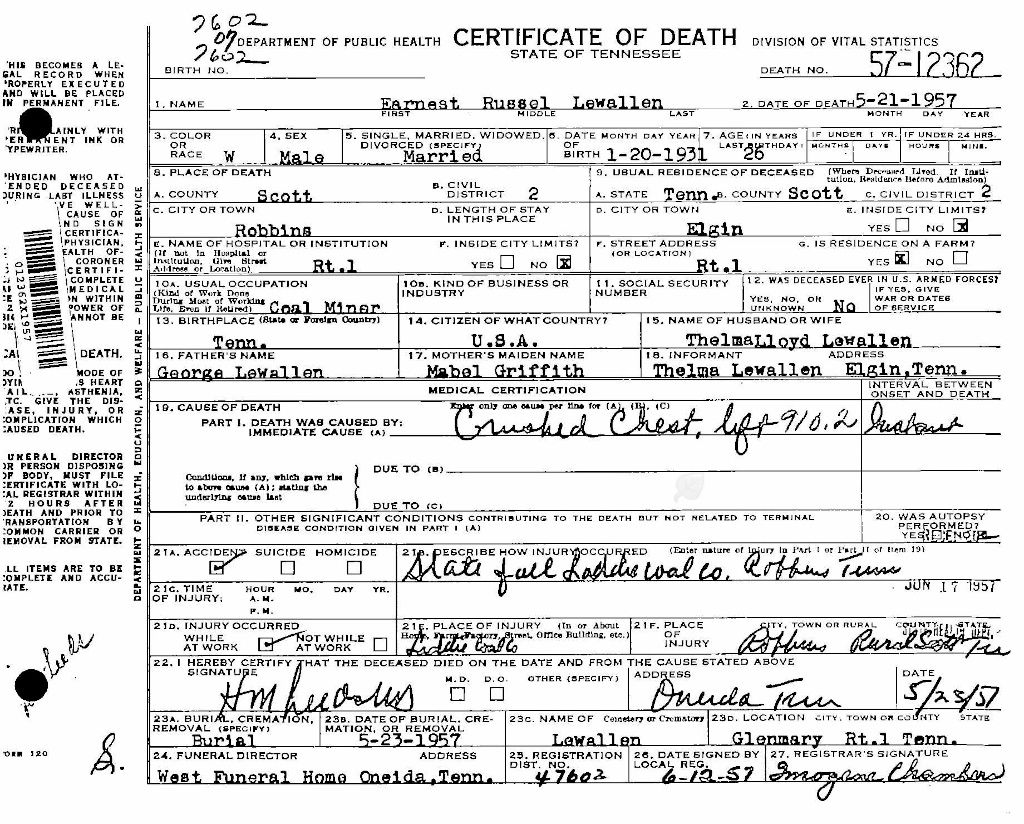 7602
07
7602
DEPARTMENT OF PUBLIC HEALTH CERTIFICATE OF DEATH DIVISION OF VITAL STATISTICS
STATE OF TENNESSEE
BIRTH NO. DEATH NO. 57-12362
1. NAME Earnest Russel Lewallen 2. DATE OF DEATH 5-21-1957
FIRST MIDDLE LAST MONTH DAY YEAR
3. COLOR OR RACE W 4. SEX Male 5. SINGLE, MARRIED, WIDOWED, DIVORCED (SPECIFY) Married 6. DATE OF BIRTH MONTH DAY YEAR 1-20-1931 7. AGE (IN YEARS LAST BIRTHDAY) 26 IF UNDER 1 YR. MONTHS DAYS IF UNDER 24 HRS. HOURS MINS.
8. PLACE OF DEATH 9. USUAL RESIDENCE OF DECEASED (Where Deceased Lived. If Institution, Residence Before Admission)
A. COUNTY Scott B. CIVIL DISTRICT 2 A. STATE Tenn. B. COUNTY Scott C. CIVIL DISTRICT 2
C. CITY OR TOWN Robbins D. LENGTH OF STAY IN THIS PLACE D. CITY OR TOWN Elgin E. INSIDE CITY LIMITS? YES NO X
E. NAME OF HOSPITAL OR INSTITUTION (If not in Hospital or Institution, Give Street Address or Location) Rt.1 F. INSIDE CITY LIMITS? YES NO X F. STREET ADDRESS (OR LOCATION) Rt.1 G. IS RESIDENCE ON A FARM? YES X NO
10A. USUAL OCCUPATION (Kind of Work Done During Most of Working Life, Even if Retired) Coal Miner 10B. KIND OF BUSINESS OR INDUSTRY 11. SOCIAL SECURITY NUMBER 12. WAS DECEASED EVER IN U.S. ARMED FORCES? YES, NO, OR UNKNOWN No IF YES, GIVE WAR OR DATES OF SERVICE
13. BIRTHPLACE (State or Foreign Country) Tenn. 14. CITIZEN OF WHAT COUNTRY? U.S.A. 15. NAME OF HUSBAND OR WIFE ThelmaLloyd Lewallen
16. FATHER'S NAME George Lewallen 17. MOTHER'S MAIDEN NAME Mabel Griffith 18. INFORMANT ADDRESS Thelma Lewallen Elgin,Tenn.
MEDICAL CERTIFICATION INTERVAL BETWEEN ONSET AND DEATH
19. CAUSE OF DEATH Enter only one cause per line for (A), (B), (C)
PART I. DEATH WAS CAUSED BY: IMMEDIATE CAUSE (A) Crushed Chest, 910.2
Conditions, if any, which gave rise to above cause (A); stating the underlying cause last
DUE TO (B)
DUE TO (C)
PART II. OTHER SIGNIFICANT CONDITIONS CONTRIBUTING TO THE DEATH BUT NOT RELATED TO TERMINAL DISEASE CONDITION GIVEN IN PART I (A) 20. WAS AUTOPSY PERFORMED? YES NO
21A. ACCIDENT SUICIDE HOMICIDE 21B. DESCRIBE HOW INJURY OCCURRED (Enter nature of Injury in Part I or Part II of Item 19)
Slate fall co, Robbins Tenn
21C. TIME OF INJURY: HOUR MO. DAY YR. A.M. P.M. JUN 17 1957
21D. INJURY OCCURRED WHILE AT WORK NOT WHILE AT WORK 21E. PLACE OF INJURY (In or About Home, Farm, Factory, Street, Office Building, etc.) 21F. PLACE OF INJURY CITY, TOWN OR RURAL COUNTY STATE Robbins Rural Scott
22. I HEREBY CERTIFY THAT THE DECEASED DIED ON THE DATE AND FROM THE CAUSE STATED ABOVE
SIGNATURE M.D. D.O. OTHER (SPECIFY) ADDRESS Oneida Tenn DATE 5/23/57
23A. BURIAL, CREMATION, REMOVAL (SPECIFY) Burial 23B. DATE OF BURIAL, CREMATION, OR REMOVAL 5-23-1957 23C. NAME OF Cemetery or Crematory Lewallen 23D. LOCATION CITY, TOWN OR COUNTY STATE Glenmary Rt.1 Tenn.
24. FUNERAL DIRECTOR ADDRESS West Funeral Home Oneida,Tenn. 25. REGISTRATION DIST. NO. 47602 26. DATE SIGNED BY LOCAL REG. 6-12-57 27. REGISTRAR'S SIGNATURE Imogene Chambers
HIS BECOMES A LE-
GAL RECORD WHEN
PROPERLY EXECUTED
AND WILL BE PLACED
IN PERMANENT FILE.
LAINLY WITH
INK OR
TYPEWRITER.
PHYSICIAN WHO AT-
TENDED DECEASED
DURING LAST ILLNESS
VE WELL-
CAUSE OF
ND SIGN
CERTIFICA-
PHYSICIAN,
EALTH OF-
CORONER
CERTIFI-
COMPLETE
MEDICAL
ON WITHIN
POWER OF
ANNOT BE
012362X1957
DEATH.
MODE OF
S HEART
ASTHENIA,
ETC. GIVE THE DIS-
EASE, INJURY, OR
COMPLICATION WHICH
CAUSED DEATH.
UNERAL DIRECTOR
OR PERSON DISPOSING
OF BODY, MUST FILE
CERTIFICATE WITH LO-
CAL REGISTRAR WITHIN
2 HOURS AFTER
DEATH AND PRIOR TO
TRANSPORTATION BY
COMMON CARRIER OR
REMOVAL FROM STATE.
LL ITEMS ARE TO BE
COMPLETE AND ACCU-
RATE.
DEPARTMENT OF HEALTH, EDUCATION, AND WELFARE - PUBLIC HEALTH SERVICE
ORM 120